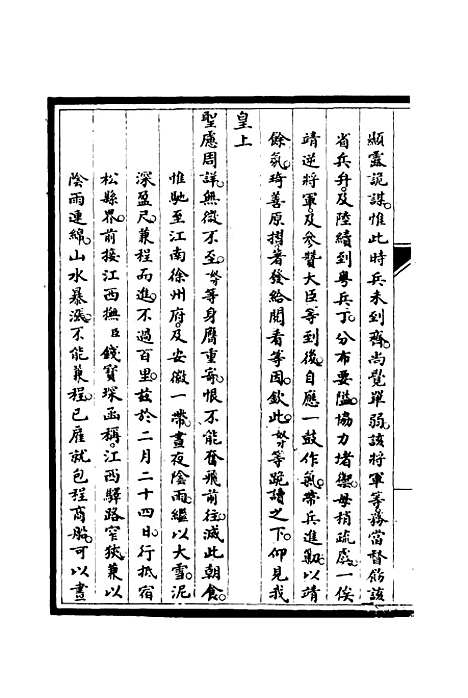 顯靈詭謀。惟此時兵未到齊。尚覺單弱。該將軍等務當督飭該
省兵弁。及陸續到粵兵丁。分布要隘。協力堵禦。毋稍疏虞。一俟
靖逆將軍。及參贊大臣等到後。自應一鼓作氣。帶兵進勦。以靖
餘氛。琦善原摺。著發給閱看等因。欽此。奴才等跪讀之下。仰見我
皇上
聖慮周詳。無微不至。奴才等身膺重寄。恨不能奮飛前往。滅此朝食。
惟馳至江南徐州府。及安徽一帶。晝夜陰雨。繼以大雪。泥
深盈尺。兼程而進。不過百里。茲於二月二十四日。行抵宿
松縣界。前接江西撫臣錢寶琛函稱。江西驛路窄狹。兼以
陰雨連綿。山水暴漲。不能兼程。已雇就包程商船。可以晝